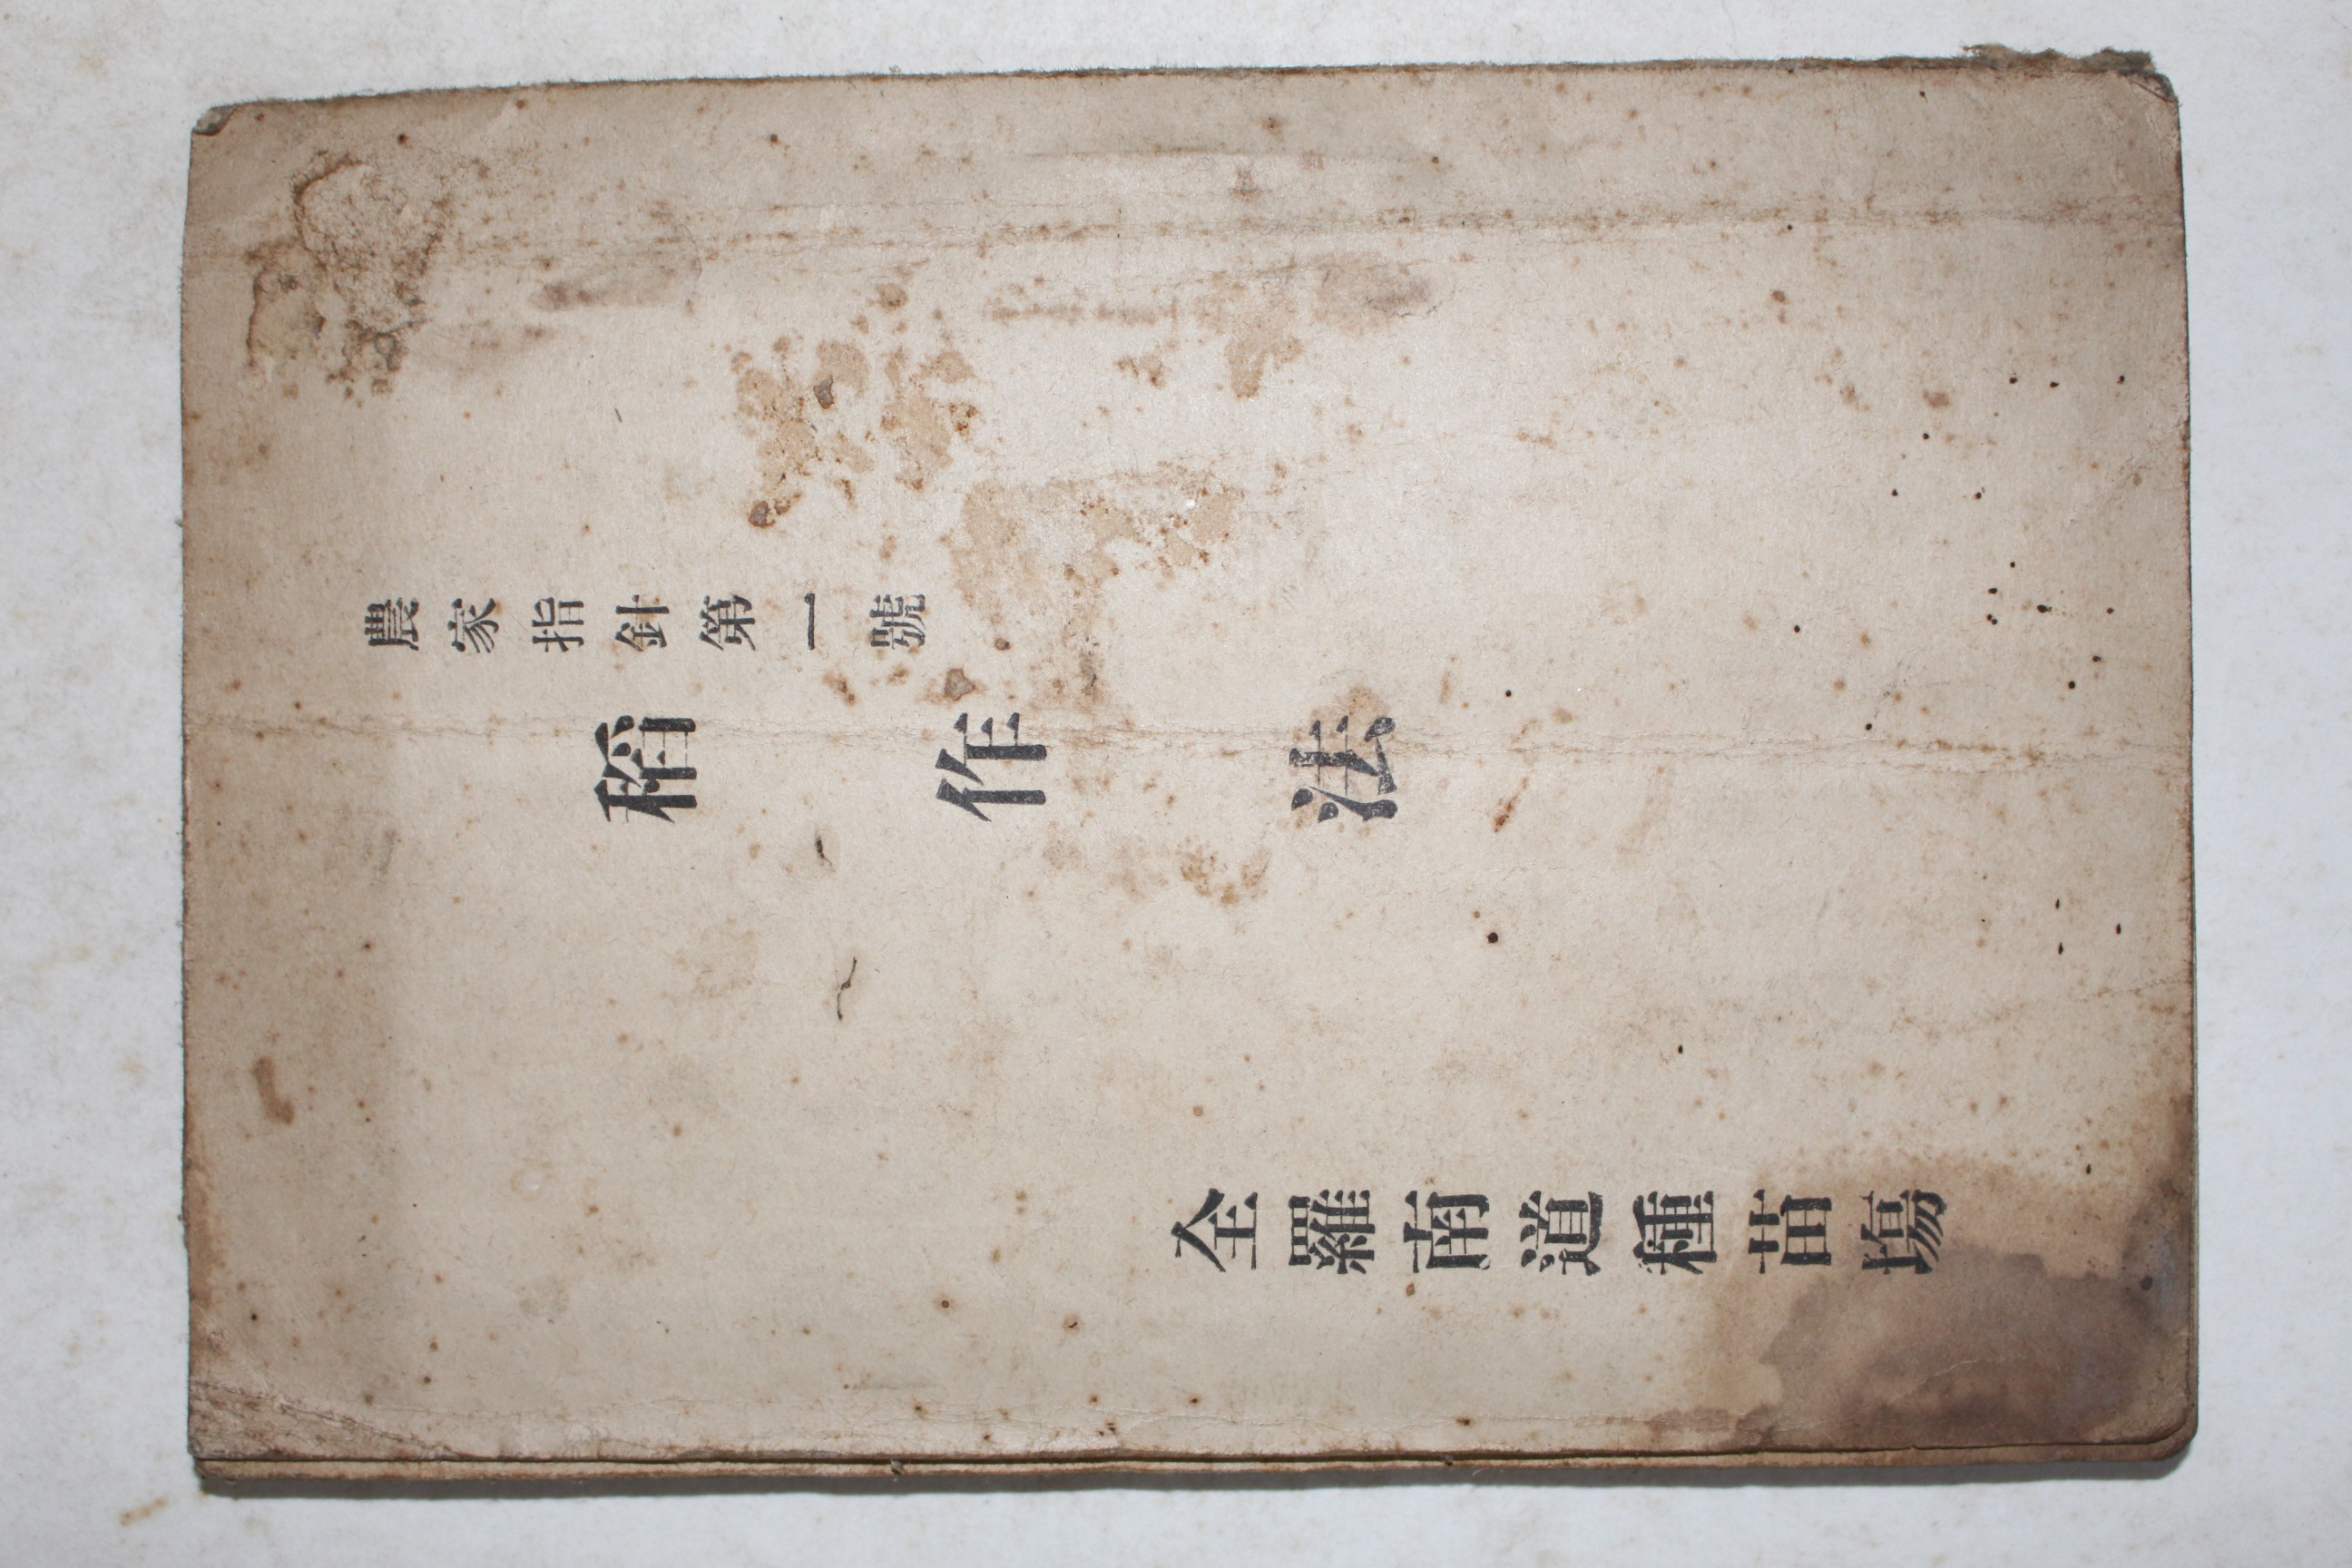 農家指針第一號
稻作法
全羅南道種苗場